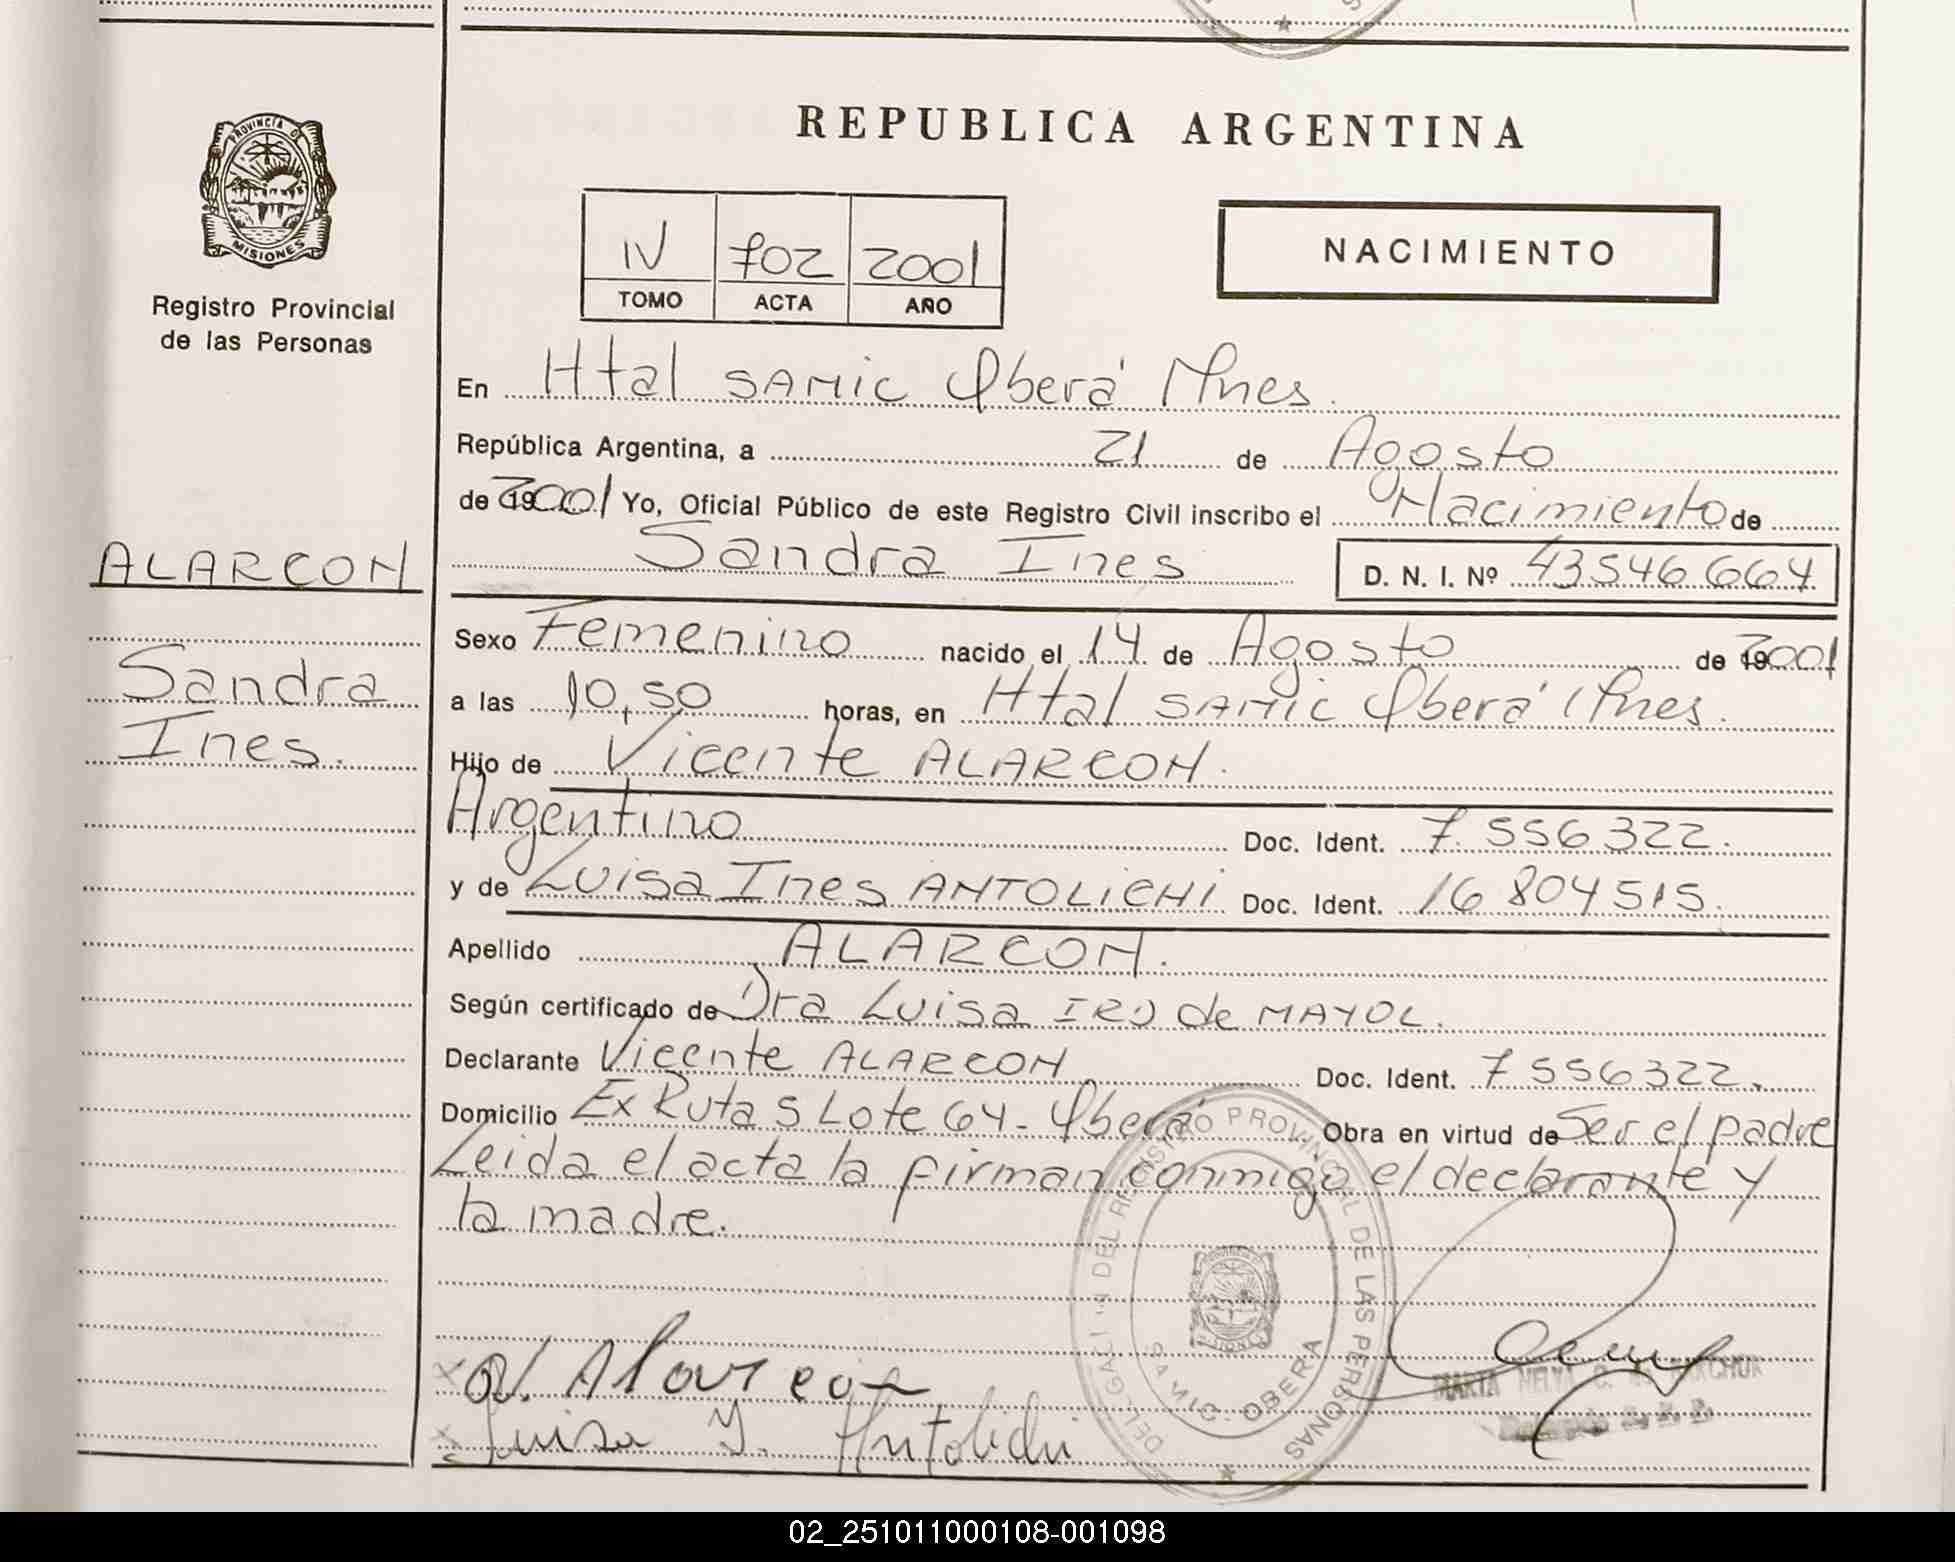 REPUBLICA ARGENTINA
PROVINCIA DE
MISIONES
Registro Provincial
de las Personas
IV 702 2001
TOMO ACTA AÑO
NACIMIENTO
En Htal SAMIC Oberá Mnes.
República Argentina, a 21 de Agosto
de 2001 Yo, Oficial Público de este Registro Civil inscribo el Nacimiento de
Sandra Ines D. N. I. Nº 43546664
ALARCON
Sandra
Ines.
Sexo Femenino nacido el 14 de Agosto de 2001
a las 10,50 horas, en Htal SAMIC Oberá Mnes.
Hijo de Vicente ALARCON.
Argentino Doc. Ident. 7.556322.
y de Luisa Ines ANTOLICHI Doc. Ident. 16804515.
Apellido ALARCON.
Según certificado de Dra Luisa IRO de MAYOL.
Declarante Vicente ALARCON Doc. Ident. 7556322.
Domicilio Ex Ruta 5 Lote 64 - Oberá Obra en virtud de Ser el padre
Leida el acta la firman conmigo el declarante y
la madre.
DEL REGISTRO PROVINCIAL DE LAS PERSONAS
SAMIC - OBERA
V. Alarcon
Luisa I. Antolichi
MARTA
02_251011000108-001098